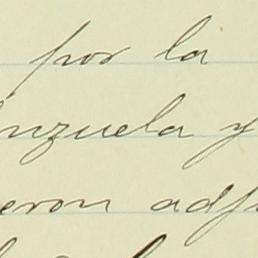 por la
enzuela y
eron adj